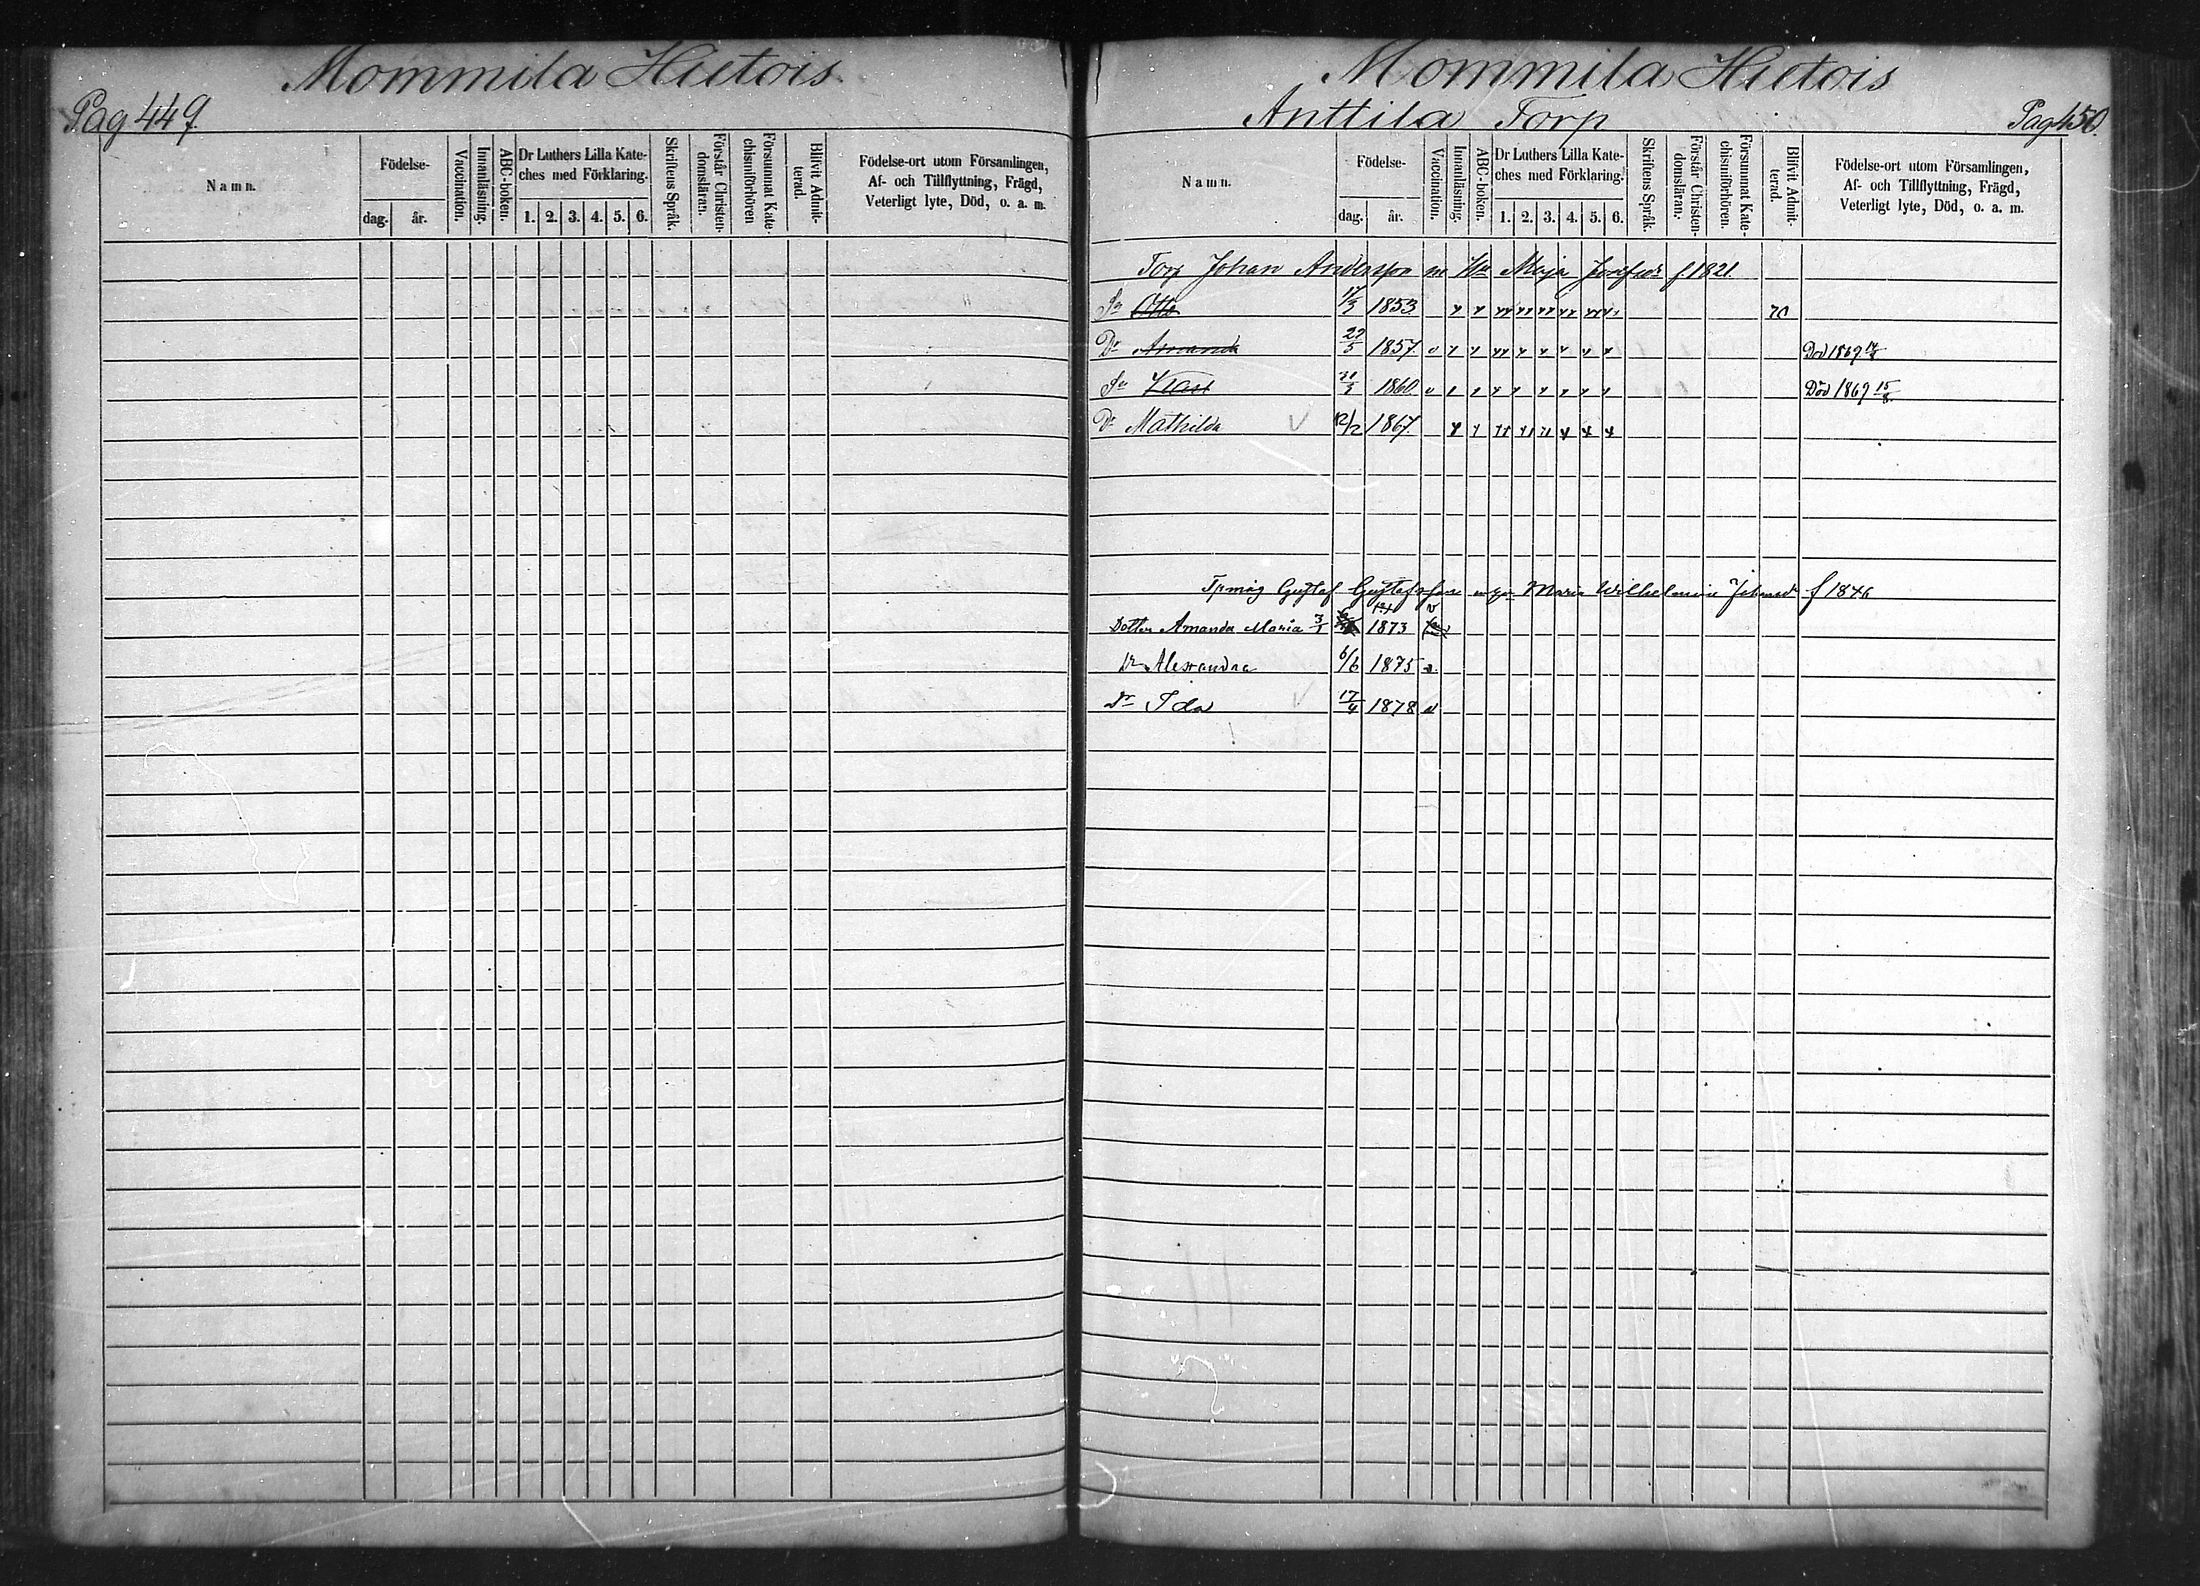 Mommila Hietois
Pag 449.
Namn.
Födelse-
dag.
år.
Vaccination.
Innanläsning.
ABC-boken.
Dr Luthers Lilla Kate-
ches med Förklaring.
1. 2. 3. 4. 5. 6.
Skriftens Språk.
Förstår Christen-
domsläran.
Försummat Kate-
chismiförhören
Blifvit Admit-
terad.
Födelse-ort utom Församlingen,
Af- och Tillflyttning, Frägd,
Veterligt lyte, Död, o. a. m.
Mommila Hietois
Anttila Torp
Pag 450.
Namn.
Födelse-
dag.
år.
Vaccination.
Innanläsning.
ABC-boken.
Dr Luthers Lilla Kate-
ches med Förklaring.
1. 2. 3. 4. 5. 6.
Skriftens Språk.
Förstår Christen-
domsläran.
Försummat Kate-
chismiförhören.
Blifvit Admit-
terad.
Födelse-ort utom Församlingen,
Af- och Tillflyttning, Frägd,
Veterligt lyte, Död, o. a. m.
Torp Johan Andersson m Hu Maja f. 1821.
Sn Otto 17/3 1853 70
Dr Amanda 1857 Död 1869
Sn 31/3 1860 Död 1869 15/8
Dr Mathilda 12/12 1867
Gustaf Gustafsson Maria Wilhelmina f 1846
Dotter Amanda Maria 3/1 1873
Dr Alexandra 6/6 1875
Dr Ida 17/4 1878